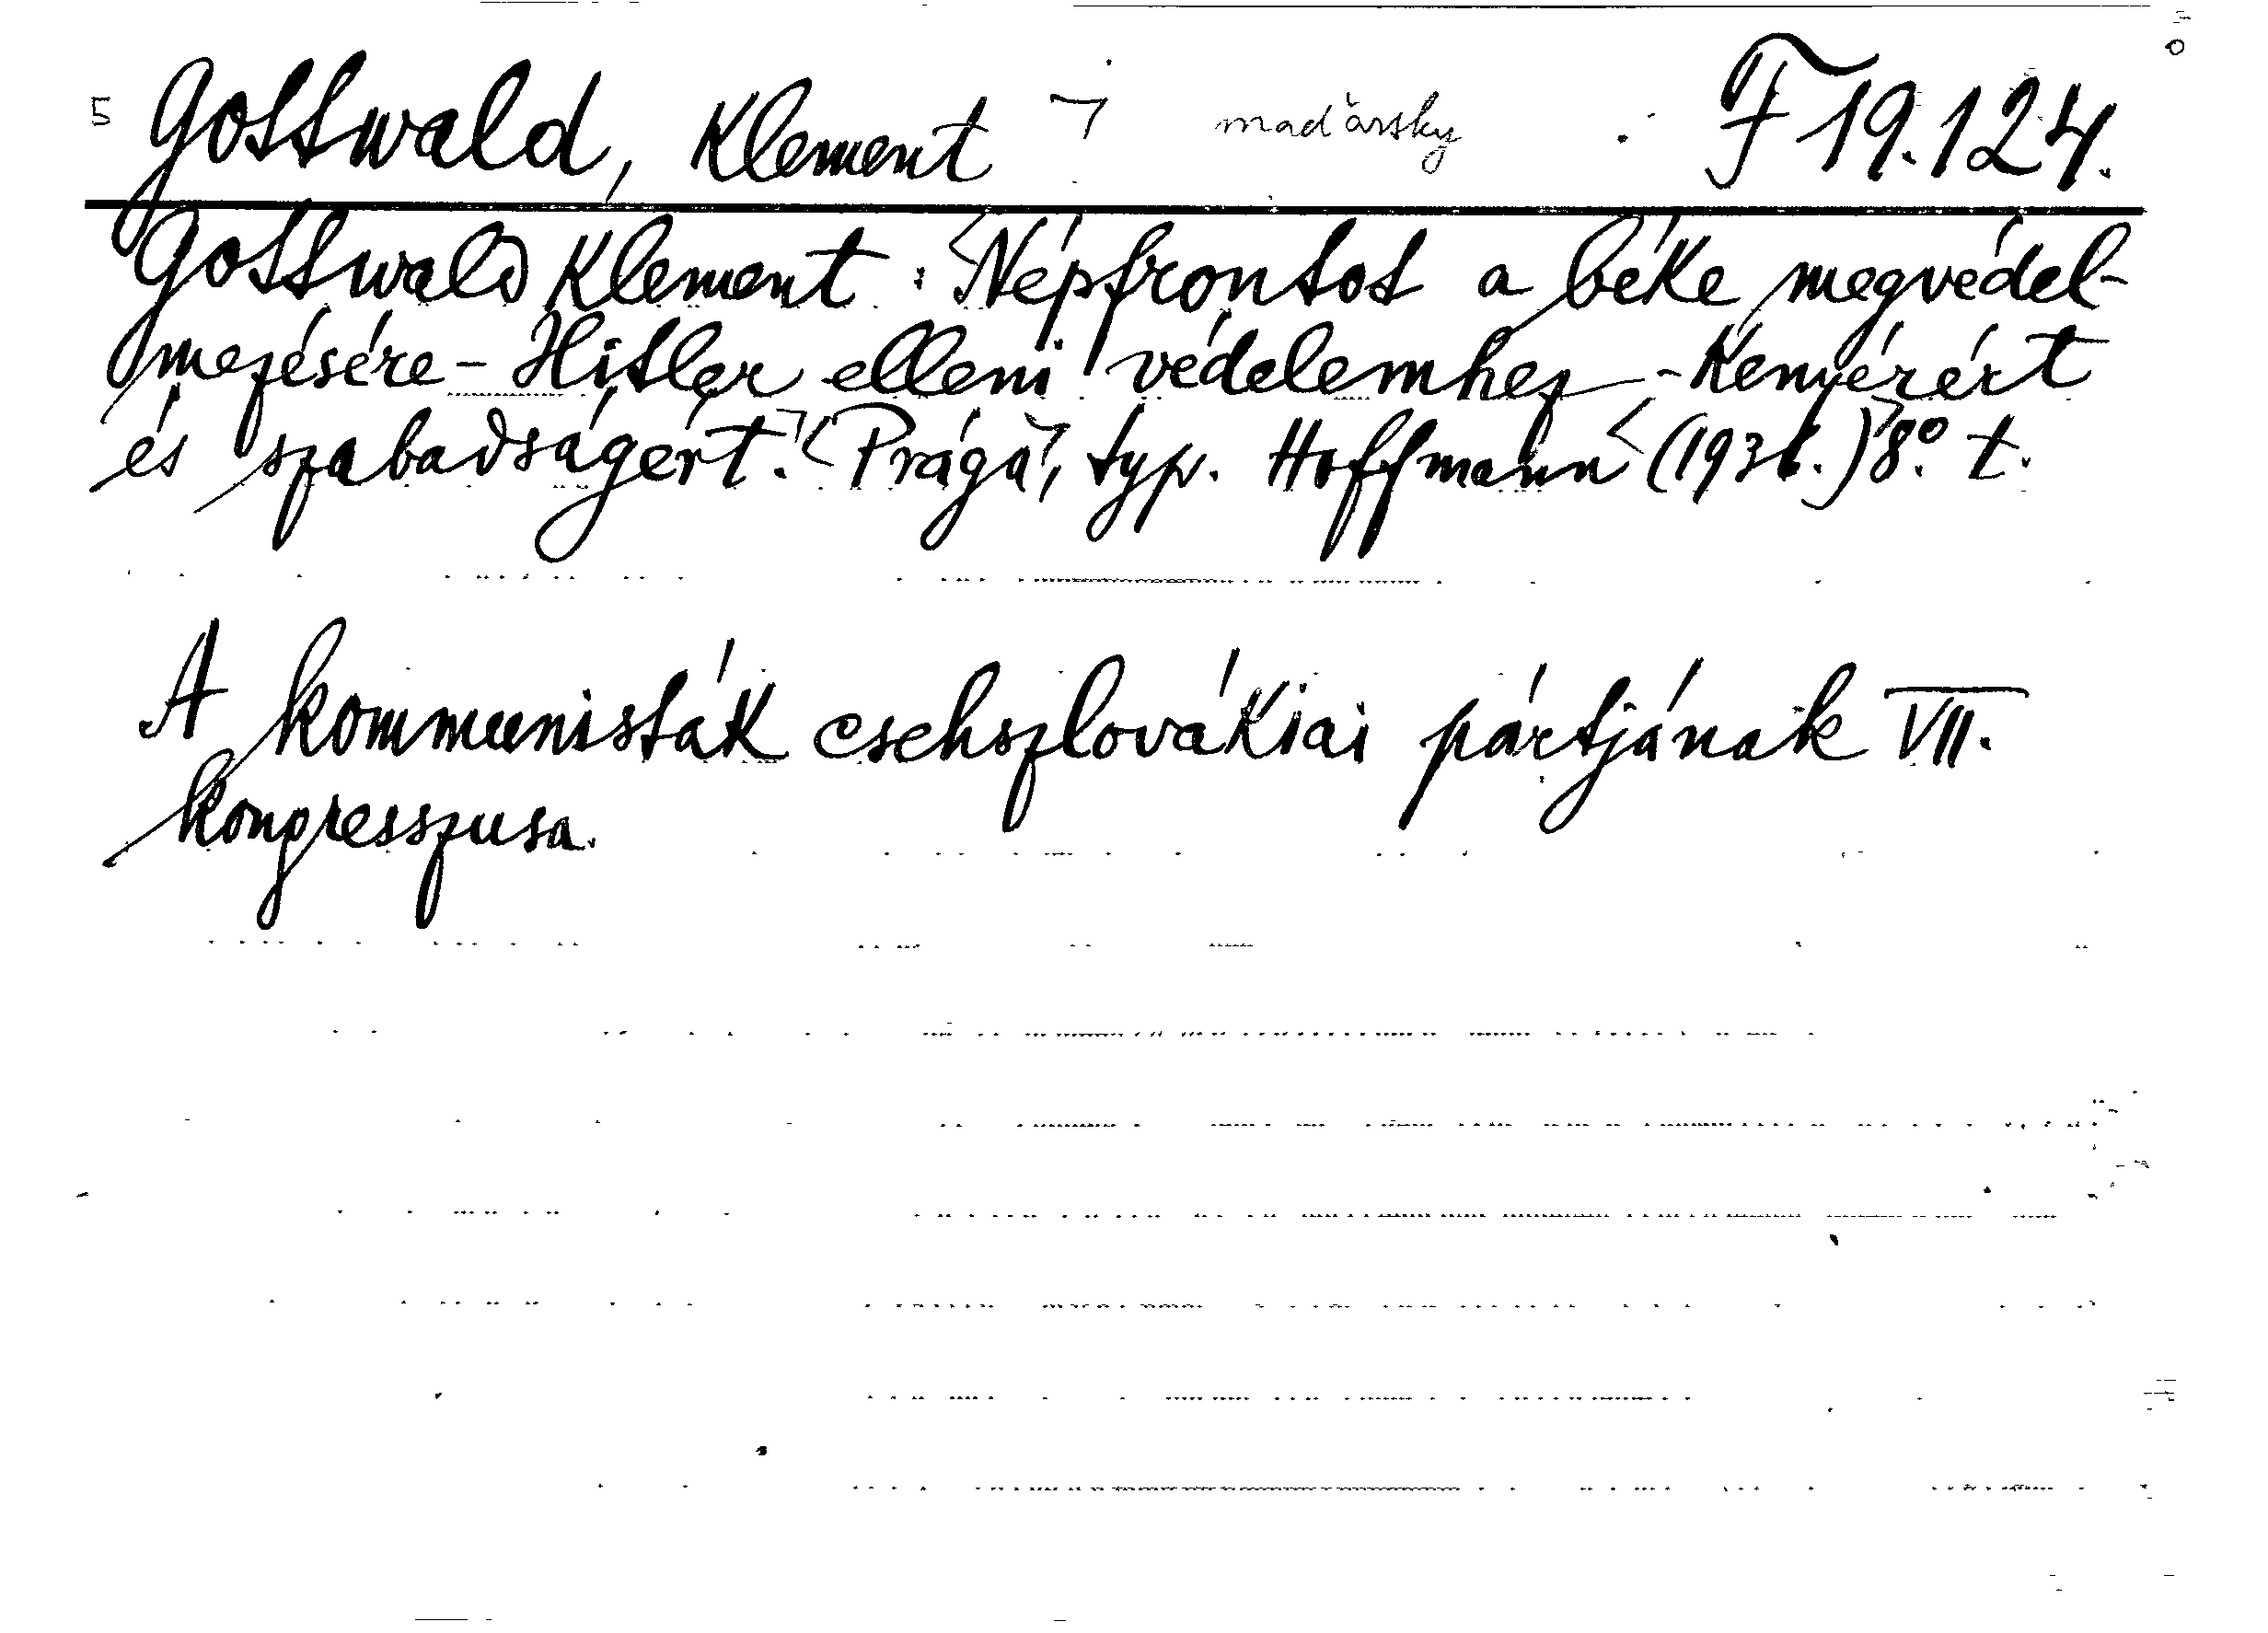 5 Gottwald, Klement ⌝ maďarsky F 19.124.
Gottwald Klement: <Népfrontot a béke megvédel-
mezésére - Hitler elleni védelemhez - Kenyérért
és szabadságért.⌝ <Prága⌝, typ. Hoffmann <(1936.)⌝ 8.° t.
A kommunisták csehszlovákiai pártjának VII.
kongresszusa.